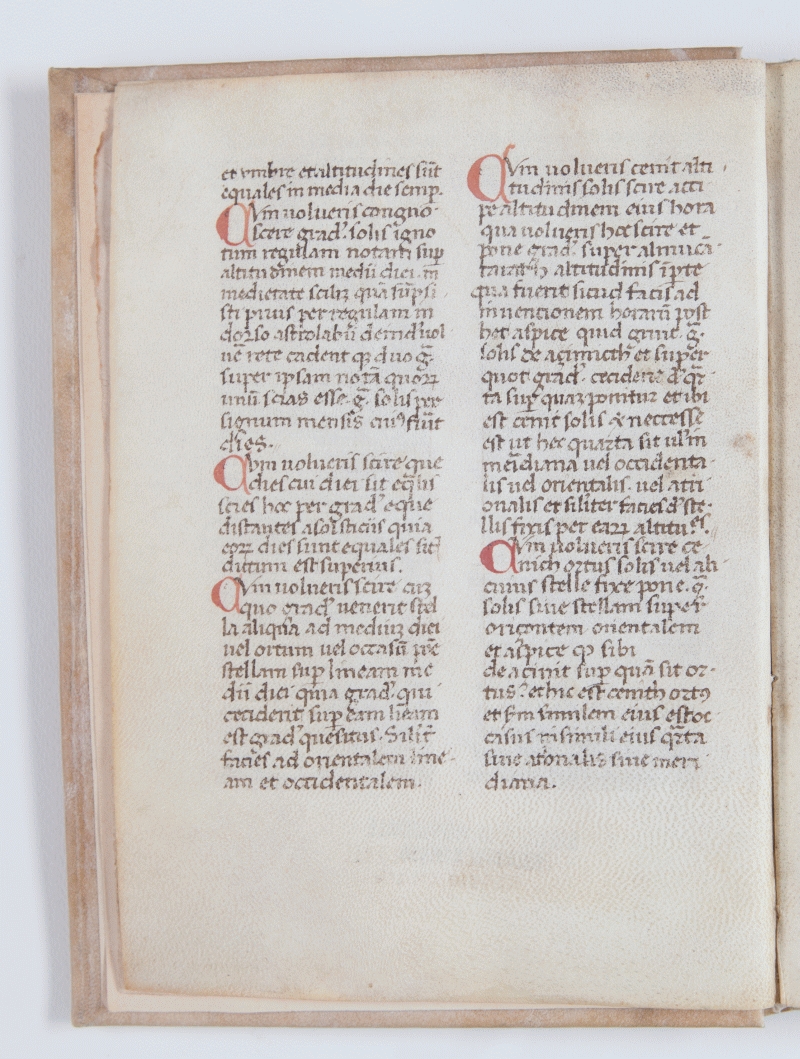 et vmbre et altitudines sūt
equales in media die semp.
Cvm uolueris congno-
scere grad' solis igno
tum regulam notatā sup
altitudinem medii diei in
medietate
sti prius per regulam in
dorso astrolabii deind uol
ue rete cadent duo g.
super ipsam notā quorꝝ
unū scias esse g. solis per
signum mensis cuiꝰ fiūt
dies.
Cvm uolueris scire que
dies cui diei sit eqlis
scies hoc per grad' eque
distantes a solsticiis quia
eorꝝ dies sunt equales
dictum est superius.
Cvm uolueris scire cuʒ
quo grad' uenerit stel
la aliqua ad mediuʒ diei
uel ortum uel occasū pōe
stellam sup lineam me
dii diei quia grad' qui
ceciderit sup eam lineam
est grad' quesitus. Silit
facies ad orientalem line-
am et occidentalem.
Cvm uolueris cenit alti
tudinis solis scire acci
pe altitudinem eius hora
qua uolueris hoc scire et
pone grad' super almuca
altitudinis ī pte
qua fuerit sicud facis ad
inuentionem horarū post
hec aspice quid g.
solis de acimuth et super
quot grad' ceciderit
ta sup quaʒ ponitur et ibi
est cenit solis necesse
est ut hec quarta sit
meridiana uel occidenta-
lis uel orientalis uel
onalis et siliter facies d' ste-
llis fixis per earꝝ altitu
Cvm uolueris scire ce-
nich ortus solis uel ali
cuius stelle fixe pone g.
solis siue stellam super
orizontem orientalem
et aspice sibi
de acimit sup quā sit or-
tus et hic est cenith ortꝰ
et similem eius est oc
casus in simili eius qrta
siue meri
diana.